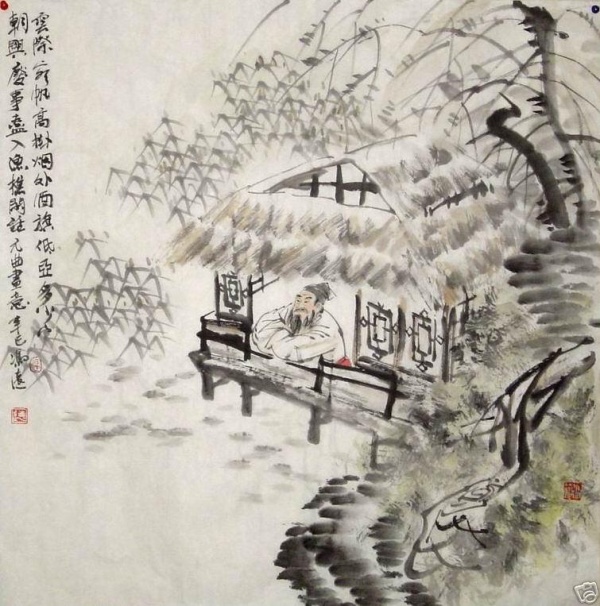 雲際客帆高掛烟外酒旗低亞多少六
朝興廢事盡入漁樵閒話元曲畫意辛巳馮遠